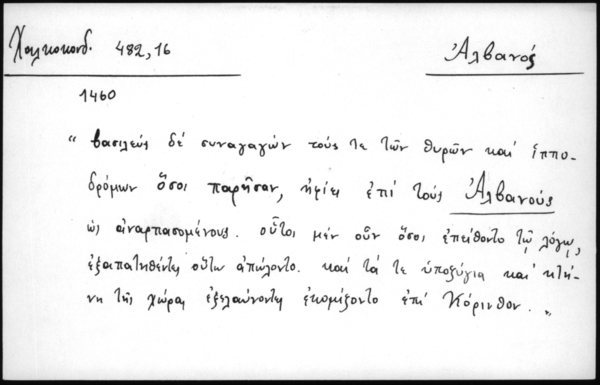 Χαλκοκονδ. 482,16
Ἀλβανός
1460
“ βασιλεύς δέ συναγαγών τούς τε τῶν θυρῶν καί ἱππο-
δρόμων ὅσοι παρῆσαν, ἠφίει ἐπί τούς Ἀλβανούς
ὡς ἀναρπασομένους. οὗτοι μέν οὖν ὅσοι ἐπείθοντο τῷ λόγῳ,
ἐξαπατηθέντες οὕτω ἀπώλοντο. καί τά τε ὑποζύγια καί κτή-
νη τῆς χώρας ἐξελαύνοντες ἐκομίζοντο ἐπί Κόρινθον. „